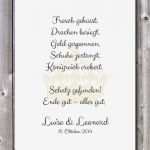 Frosch geküsst,
Drachen besiegt,
Gold gesponnen,
Schuhe getanzt,
Königreich erobert.
Schatz gefunden!
Ende gut – alles gut,
Luise & Leonard
11. Oktober 2014